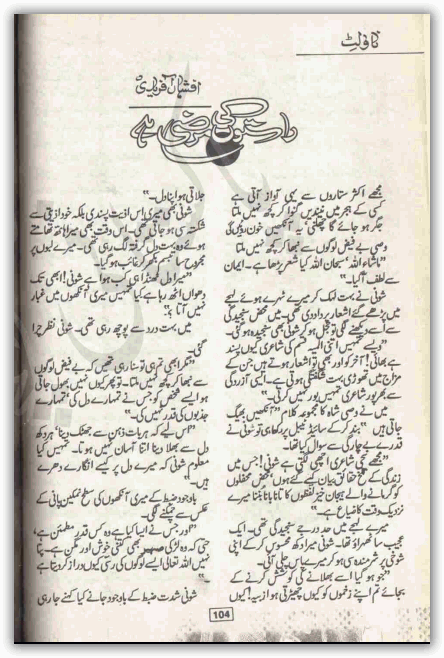 ناولٹ
افشاں آفریدی
راستوں کی مرضی ہے
مجھے اکثر ستاروں سے یہی آواز آتی ہے
کسی کے ہجر میں نیندیں گنوا کر کچھ نہیں ملتا
جگر ہو جائے گا چھلنی یہ آنکھیں خون روئیں گی
وصی بے فیض لوگوں سے نبھا کر کچھ نہیں ملتا
"ماشاء اللہ، سبحان اللہ کیا شعر پڑھا ہے۔ ایمان
سے لطف آ گیا۔"
شونی نے بہت لہک کر میرے ٹھہرے ہوئے لہجے
میں پڑھے گئے اشعار پر داد دی تھی۔ میں محض سنجیدگی
سے اسے دیکھنے لگی تو خجل ہو کر شونی بھی سنجیدہ ہو گئی۔
"ویسے تمہیں اتنی المیہ قسم کی شاعری کیوں پسند
ہے بھئی! آخر کو اور بھی تو اشعار ہوتے ہیں جن کے
مزاج میں تھوڑی بہت شگفتگی ہوتی ہے۔ ایسی آزردگی
سے بھرپور شاعری تمہیں بور نہیں کرتی۔"
میں نے وصی شاہ کا مجموعہ کلام "آنکھیں بھیگ
جاتی ہیں" بند کر کے سائیڈ ٹیبل پر رکھا ہی تو شونی نے
قدرے بے چارگی سے سوال کیا تھا۔
"مجھے یہی شاعری اچھی لگتی ہے شونی! جس میں
زندگی کے تلخ حقائق بیان کیے گئے ہوں، محض محفلوں
کو گرمانے والے ہیجان خیز لفظوں کا تانا بانا بننا میرے
نزدیک وقت کا ضیاع ہے۔"
میرے لہجے میں حد درجہ سنجیدگی تھی۔ ایک
عجیب سا ٹھہراؤ تھا۔ شونی میرا دکھ محسوس کر کے اپنی
شوخی پر شرمندہ سی ہو کر میرے پاس چلی آئی۔
"جو ہو گیا اسے بھلانے کی کوشش کرنے کے
بجائے تم اپنے زخموں کو کیوں چھیڑتی ہو ازبیہ! کیوں
جلاتی ہو اپنا دل۔"
شونی بھی میری اس اذیت پسندی بلکہ خود اذیتی سے
شکستہ سی ہو جاتی تھی۔ اس وقت بھی میرا ہاتھ تھامتے
ہوئے وہ بہت دل گرفتہ لگ رہی تھی۔ میرے لبوں پر
مجروح سا تبسم بکھر کر غائب ہو گیا۔
"میرا دل ٹھنڈا ہی کب ہوا ہے شونی! ابھی تک
دھواں اٹھ رہا ہے کیا تمہیں میری آنکھوں میں غبار
نظر نہیں آتا؟"
میں بہت درد سے پوچھ رہی تھی۔ شونی نظر چرا
گئی۔
"مگر ابھی تم ہی تو سنا رہی تھیں کہ بے فیض لوگوں
سے نبھا کر کچھ نہیں ملتا۔ تو پھر کیوں نہیں بھول جاتی
ہو ایسے شخص کو جس نے تمہارے دل کی، تمہارے
جذبوں کی قدر نہیں کی۔"
"اس لیے کہ ہر بات ذہن سے جھٹک دینا، ہر دکھ
دل سے بھلا دینا اتنا آسان نہیں ہوتا۔ تمہیں کیا
معلوم شونی کہ میرے دل پر کیسے انگارے دھرے
ہیں۔"
باوجود ضبط کے میری آنکھوں کی سطح نمکین پانی کے
عکس سے چمکنے لگی۔
"اور جس نے ایسا کیا ہے وہ کس قدر مطمئن ہے،
حتیٰ کہ وہ لڑکی بھی کتنی خوش اور مگن ہے۔ پتا
نہیں اللہ تعالیٰ ایسے لوگوں کی رسی کیوں دراز کر دیتا ہے
شونی شدت ضبط کے باوجود جانے کیا کہنے جا رہی
104